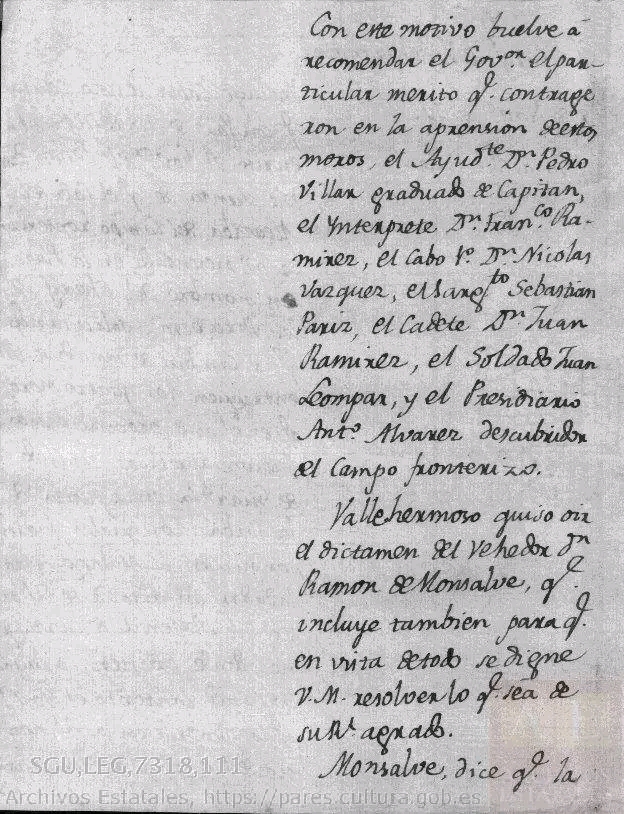 Con este motivo buelve á
recomendar el Gov.or el par-
ticular merito q.e contrage
ron en la aprension de estos
moros, el Ayud.te D.n Pedro
Villar graduado de Capitan,
el Ynterprete D.n Fran.co Ra-
mirez, el Cabo 1.o D.n Nicolas
Vazquez, el Sarg.to Sebastian
Pariz, el Cadete D.n Juan
Ramirez, el Soldado Juan
Lompar, y el Presidiario
Ant.o Alvarez descubridor
del Campo fronterizo.
Vallehermoso quiso oir
el dictamen del Vehedor D.n
Ramon de Monsalve, q.e
incluye tambien para q.e
en vista de todo se digne
V.M. resolver lo q.e sea de
su R.l agrado.
Monsalve, dice q.e la
SGU,LEG,7318,111
Archivos Estatales, https://pares.cultura.gob.es